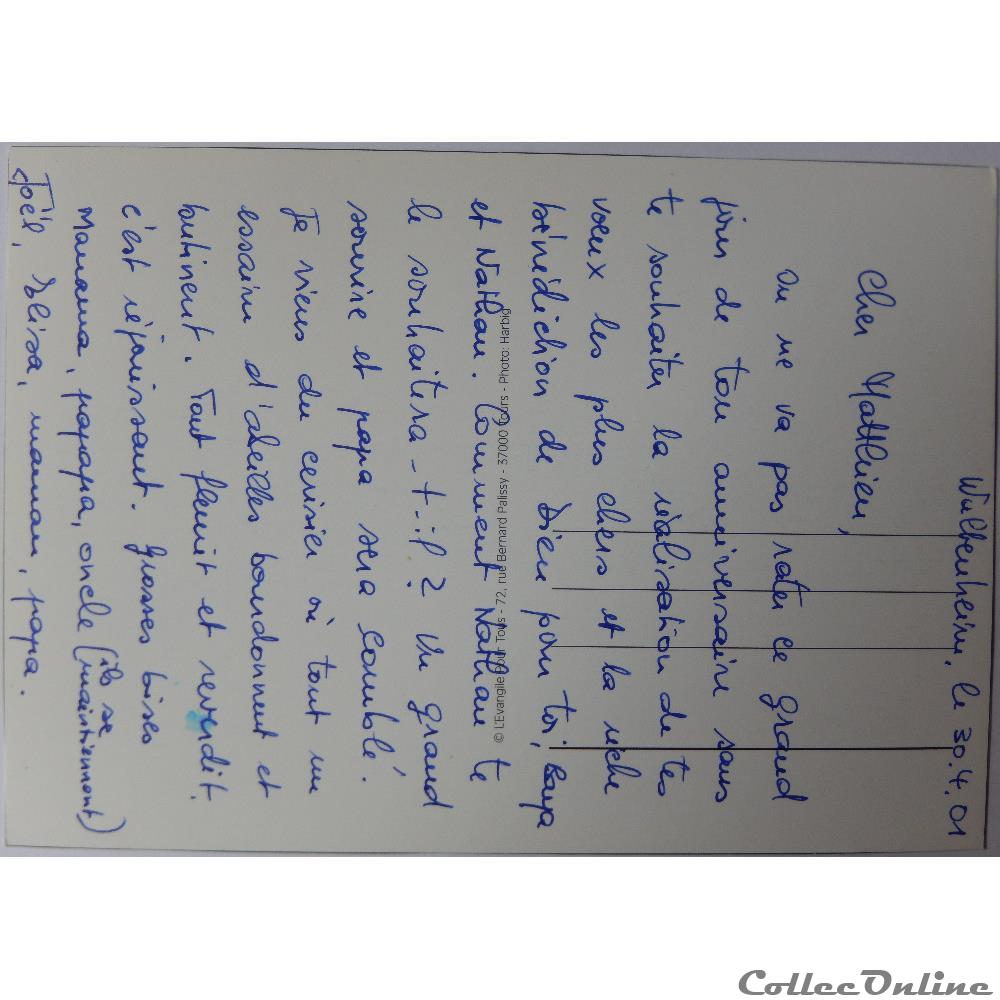 Wulbenheim, le 30.4.01
Cher Matthieu,
On ne va pas rater ce grand
jour de ton anniversaire sans
te souhaiter la réalisation de tes
voeux les plus chers et la riche
bénédiction de Dieu pour toi,
et Nathan. Comment Nathan te
le souhaitera-t-il ? Un grand
sourire et papa sera comblé.
Je viens du cerisier où tout un
essaim d'abeilles bourdonnent et
butinent. Tout fleurit et reverdit.
c'est réjouissant. Grosses bises
Mamama, papapa, oncle (ils se maintiennent)
Joël, Elisa, maman, papa.
© L'Evangile pour Tous - 72, rue Bernard Palissy - 37000 Tours - Photo: Harbig
CollecOnline